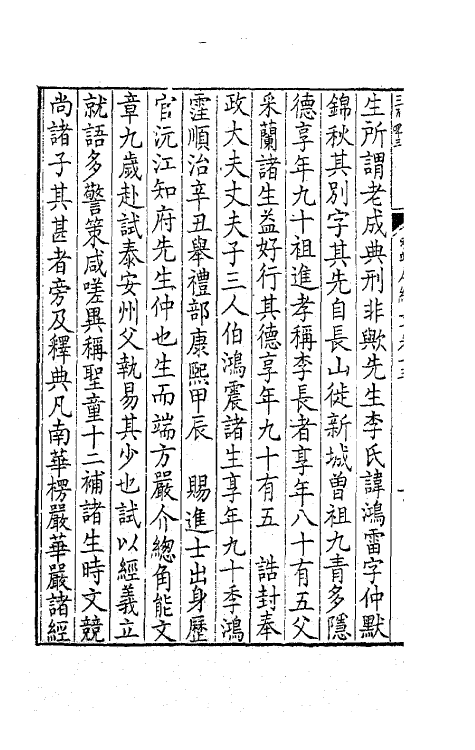 生所謂老成典刑非歟先生李氏諱鴻雷字仲默
錦秋其別字其先自長山徙新城曾祖九青多隱
德享年九十祖進孝稱李長者享年八十有五父
采蘭諸生益好行其德享年九十有五 誥封奉
政大夫丈夫子三人伯鴻震諸生享年九十季鴻
霔順治辛丑舉禮部康熙甲辰 賜進士出身歷
官沅江知府先生仲也生而端方嚴介總角能文
章九歲赴試泰安州父執易其少也試以經義立
就語多警策咸嗟異稱聖童十二補諸生時文競
尚諸子其甚者旁及釋典凡南華楞嚴華嚴諸經